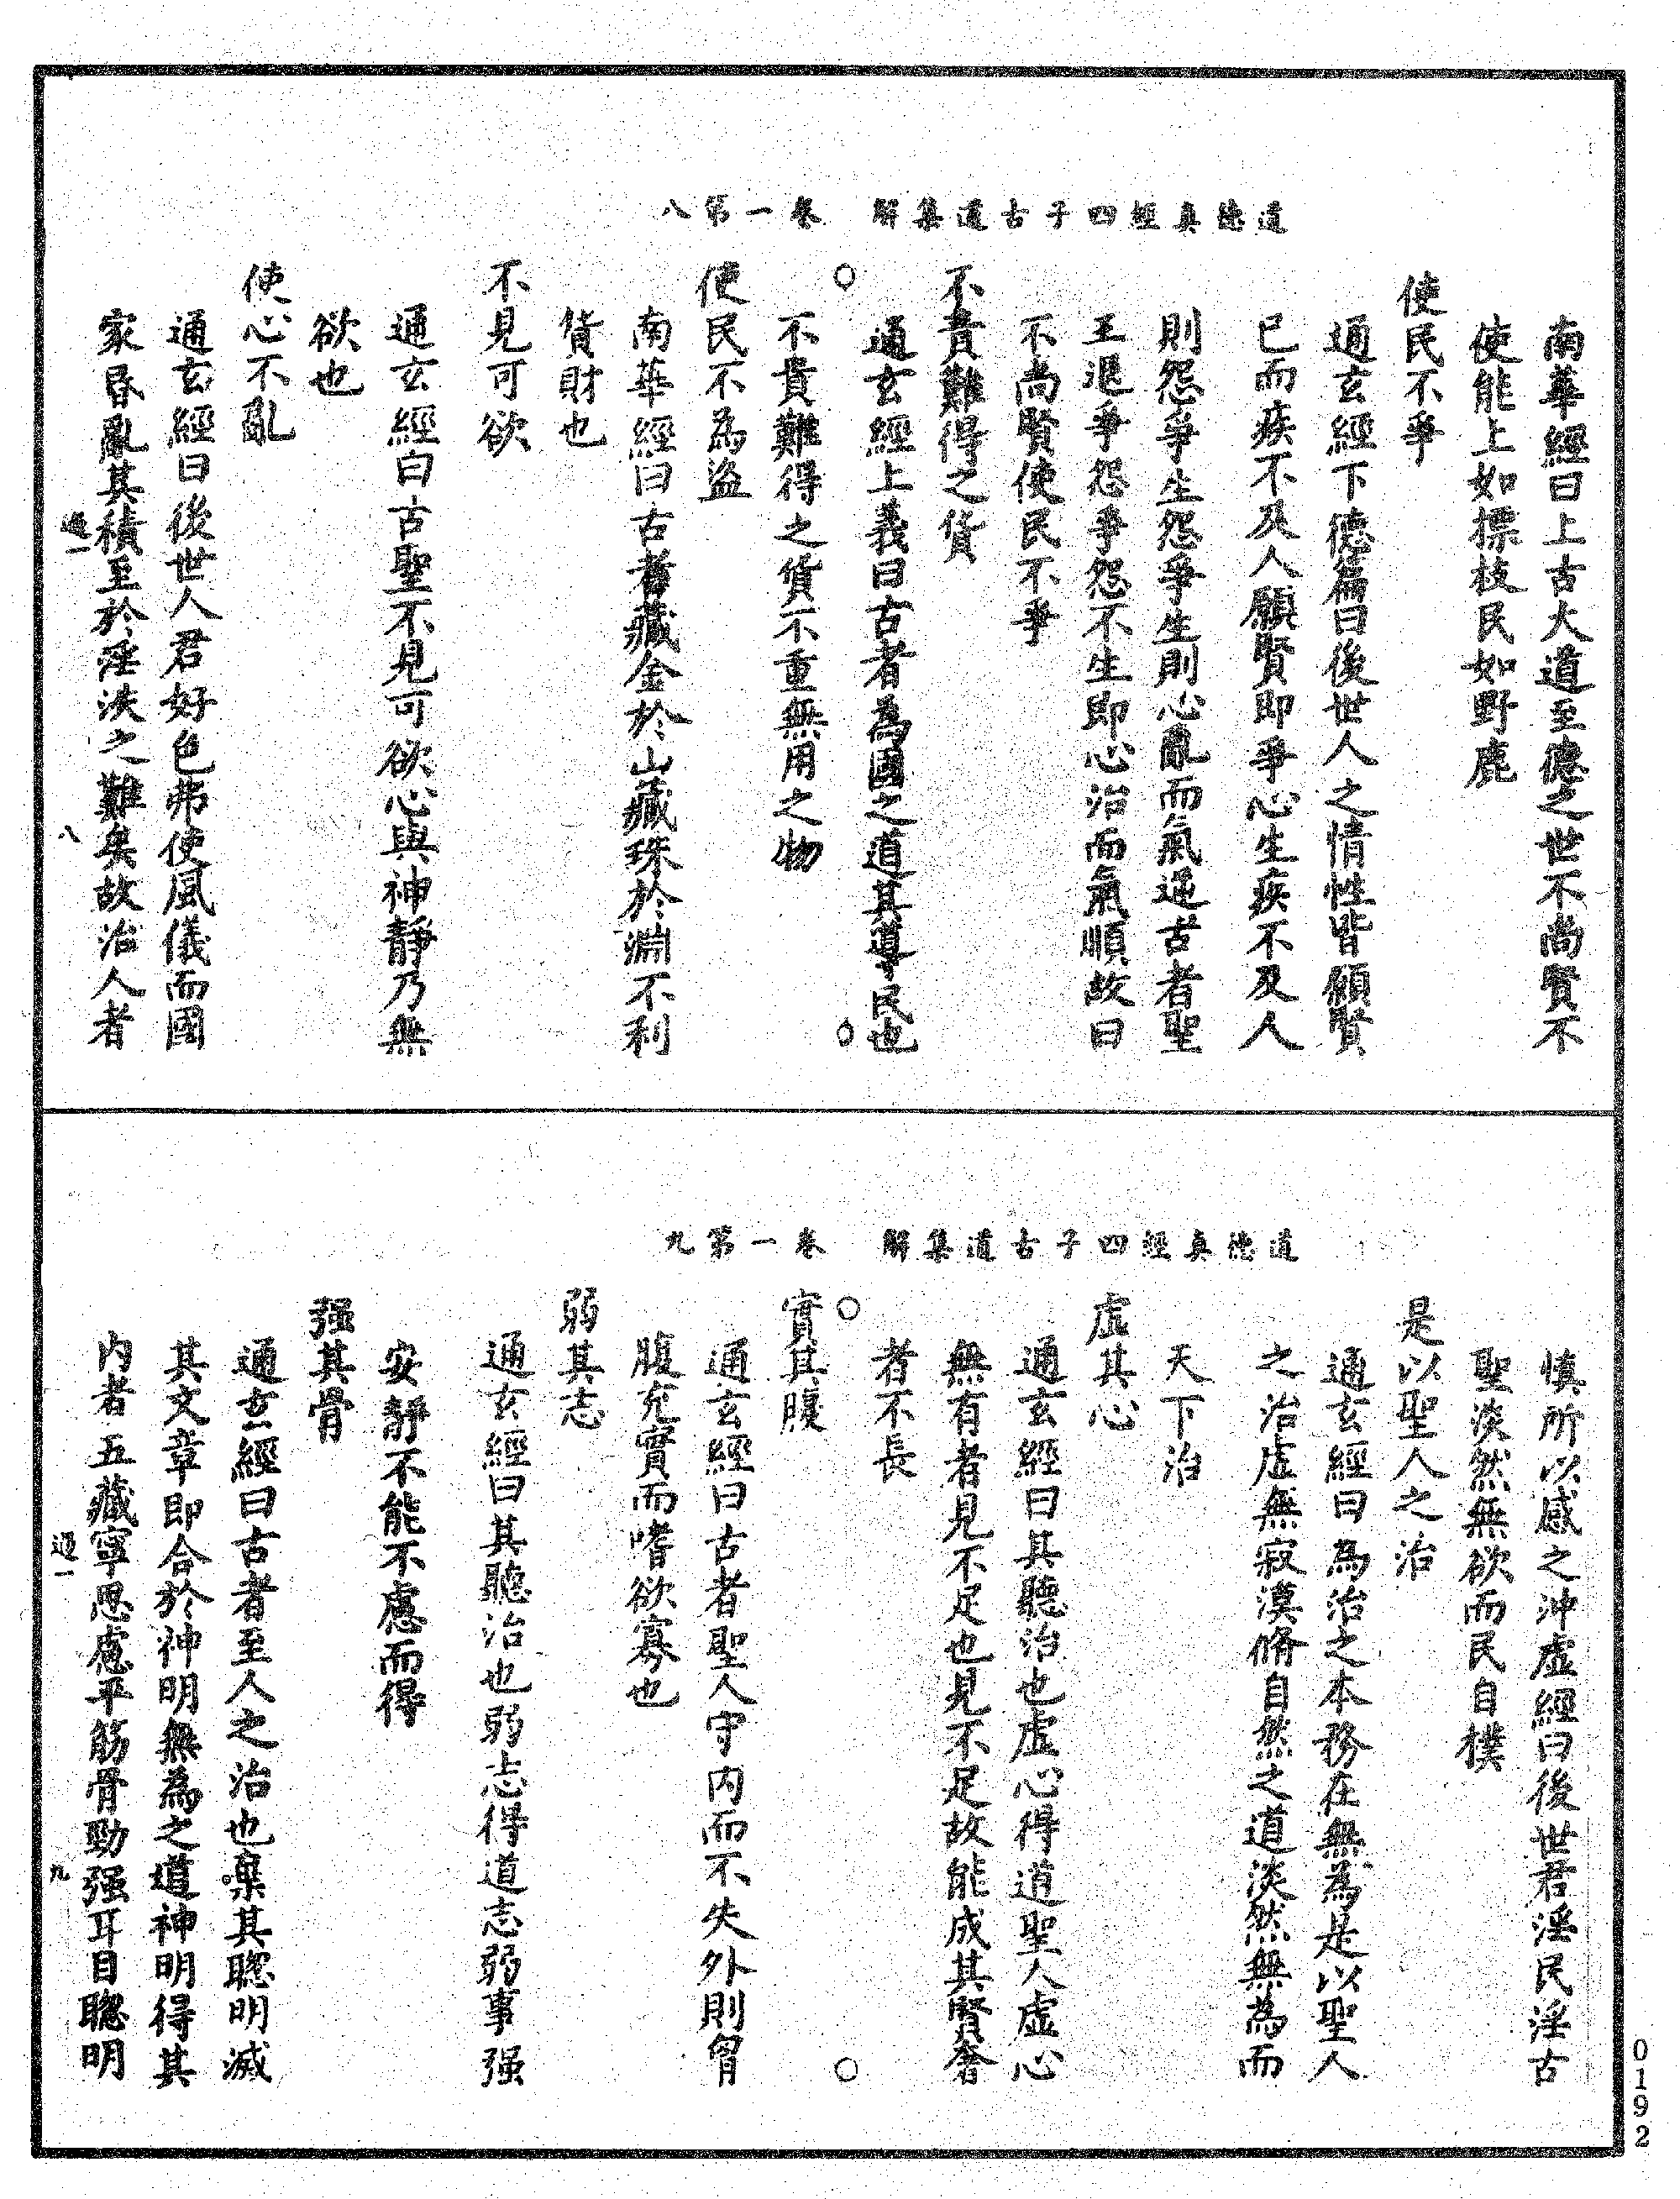 道德真經四子古道集解　卷一第八
南華經曰上古大道至德之世不尚賢不
使能上如摽枝民如野鹿
使民不爭
通玄經下德篇曰後世人之情性皆願賢
已而疾不及人願賢即爭心生疾不及人
則怨爭生怨爭生則心亂而氣逆古者聖
王退爭怨爭怨不生即心治而氣順故曰
不尚賢使民不爭
不貴難得之貨
通玄經上義曰古者為國之道其導民也
○　○
不貴難得之貨不重無用之物
使民不為盜
南華經曰古者藏金於山藏珠於淵不利
貨財也
不見可欲
通玄經曰古聖不見可欲心與神靜乃無
欲也
使心不亂
通玄經曰後世人君好色弗使風儀而國
家昬亂其積至於淫泆之難矣故治人者
過一　八
道德真經四子古道集解　卷一第九
慎所以感之沖虛經曰後世君淫民淫古
聖淡然無欲而民自樸
是以聖人之治
通玄經曰為治之本務在無為是以聖人
之治虛無寂漠脩自然之道淡然無為而
天下治
虛其心
通玄經曰其聽治也虛心得道聖人虛心
無有者見不足也見不足故能成其賢奢
者不長
○　○
實其腹
通玄經曰古者聖人守内而不失外則胷
腹充實而嗜欲寡也
弱其志
通玄經曰其聽治也弱志得道志弱事强
安靜不能不慮而得
强其骨
通玄經曰古者至人之治也棄其聦明滅
其文章即合於神明無為之道神明得其
内者五藏寧思慮平筋骨勁强耳目聦明
過一　九
0192